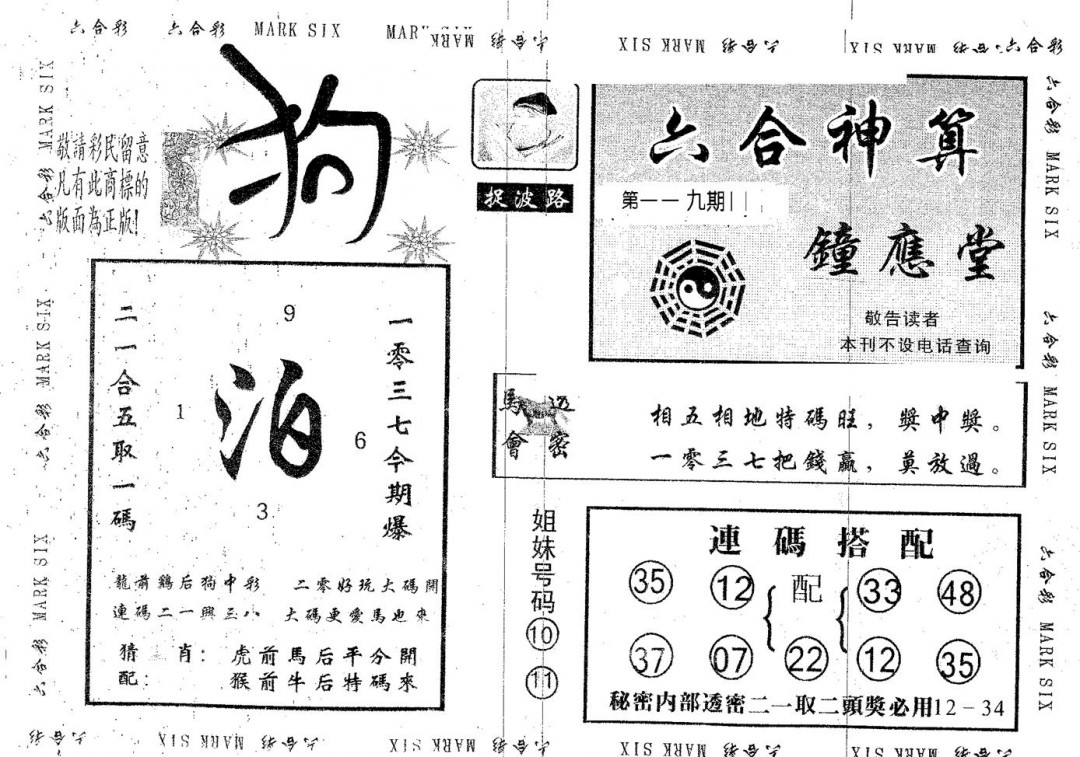 六合彩 六合彩 MARK SIX MARK 六合彩 MARK SIX 六合彩 MARK SIX 六合彩
六合彩 MARK SIX 六合彩 MARK SIX 六合彩 MARK SIX 六合彩
敬請彩民留意
凡有此商標的
版面為正版!
狗
二一合五取一碼
一零三七今期爆
9
1
泊
6
3
龍前鷄后狗中彩 二零好玩大碼開
連碼二一興三八 大碼更愛馬也來
猜 肖: 虎前馬后平分開
配: 猴前牛后特碼來
捉波路
六合神算
第一一九期
鐘應堂
敬告读者
本刊不设电话查询
馬會
透密
相五相地特碼旺,獎中獎。
一零三七把錢贏,莫放過。
姐妹号码
10
11
連碼搭配
35 12 配 33 48
37 07 22 12 35
秘密内部透密二一取二頭獎必用12-34
六合彩 MARK SIX 六合彩 MARK SIX 六合彩 MARK SIX
六合彩 MARK SIX 六合彩 MARK SIX 六合彩 MARK SIX 六合彩 MARK SIX 六合彩